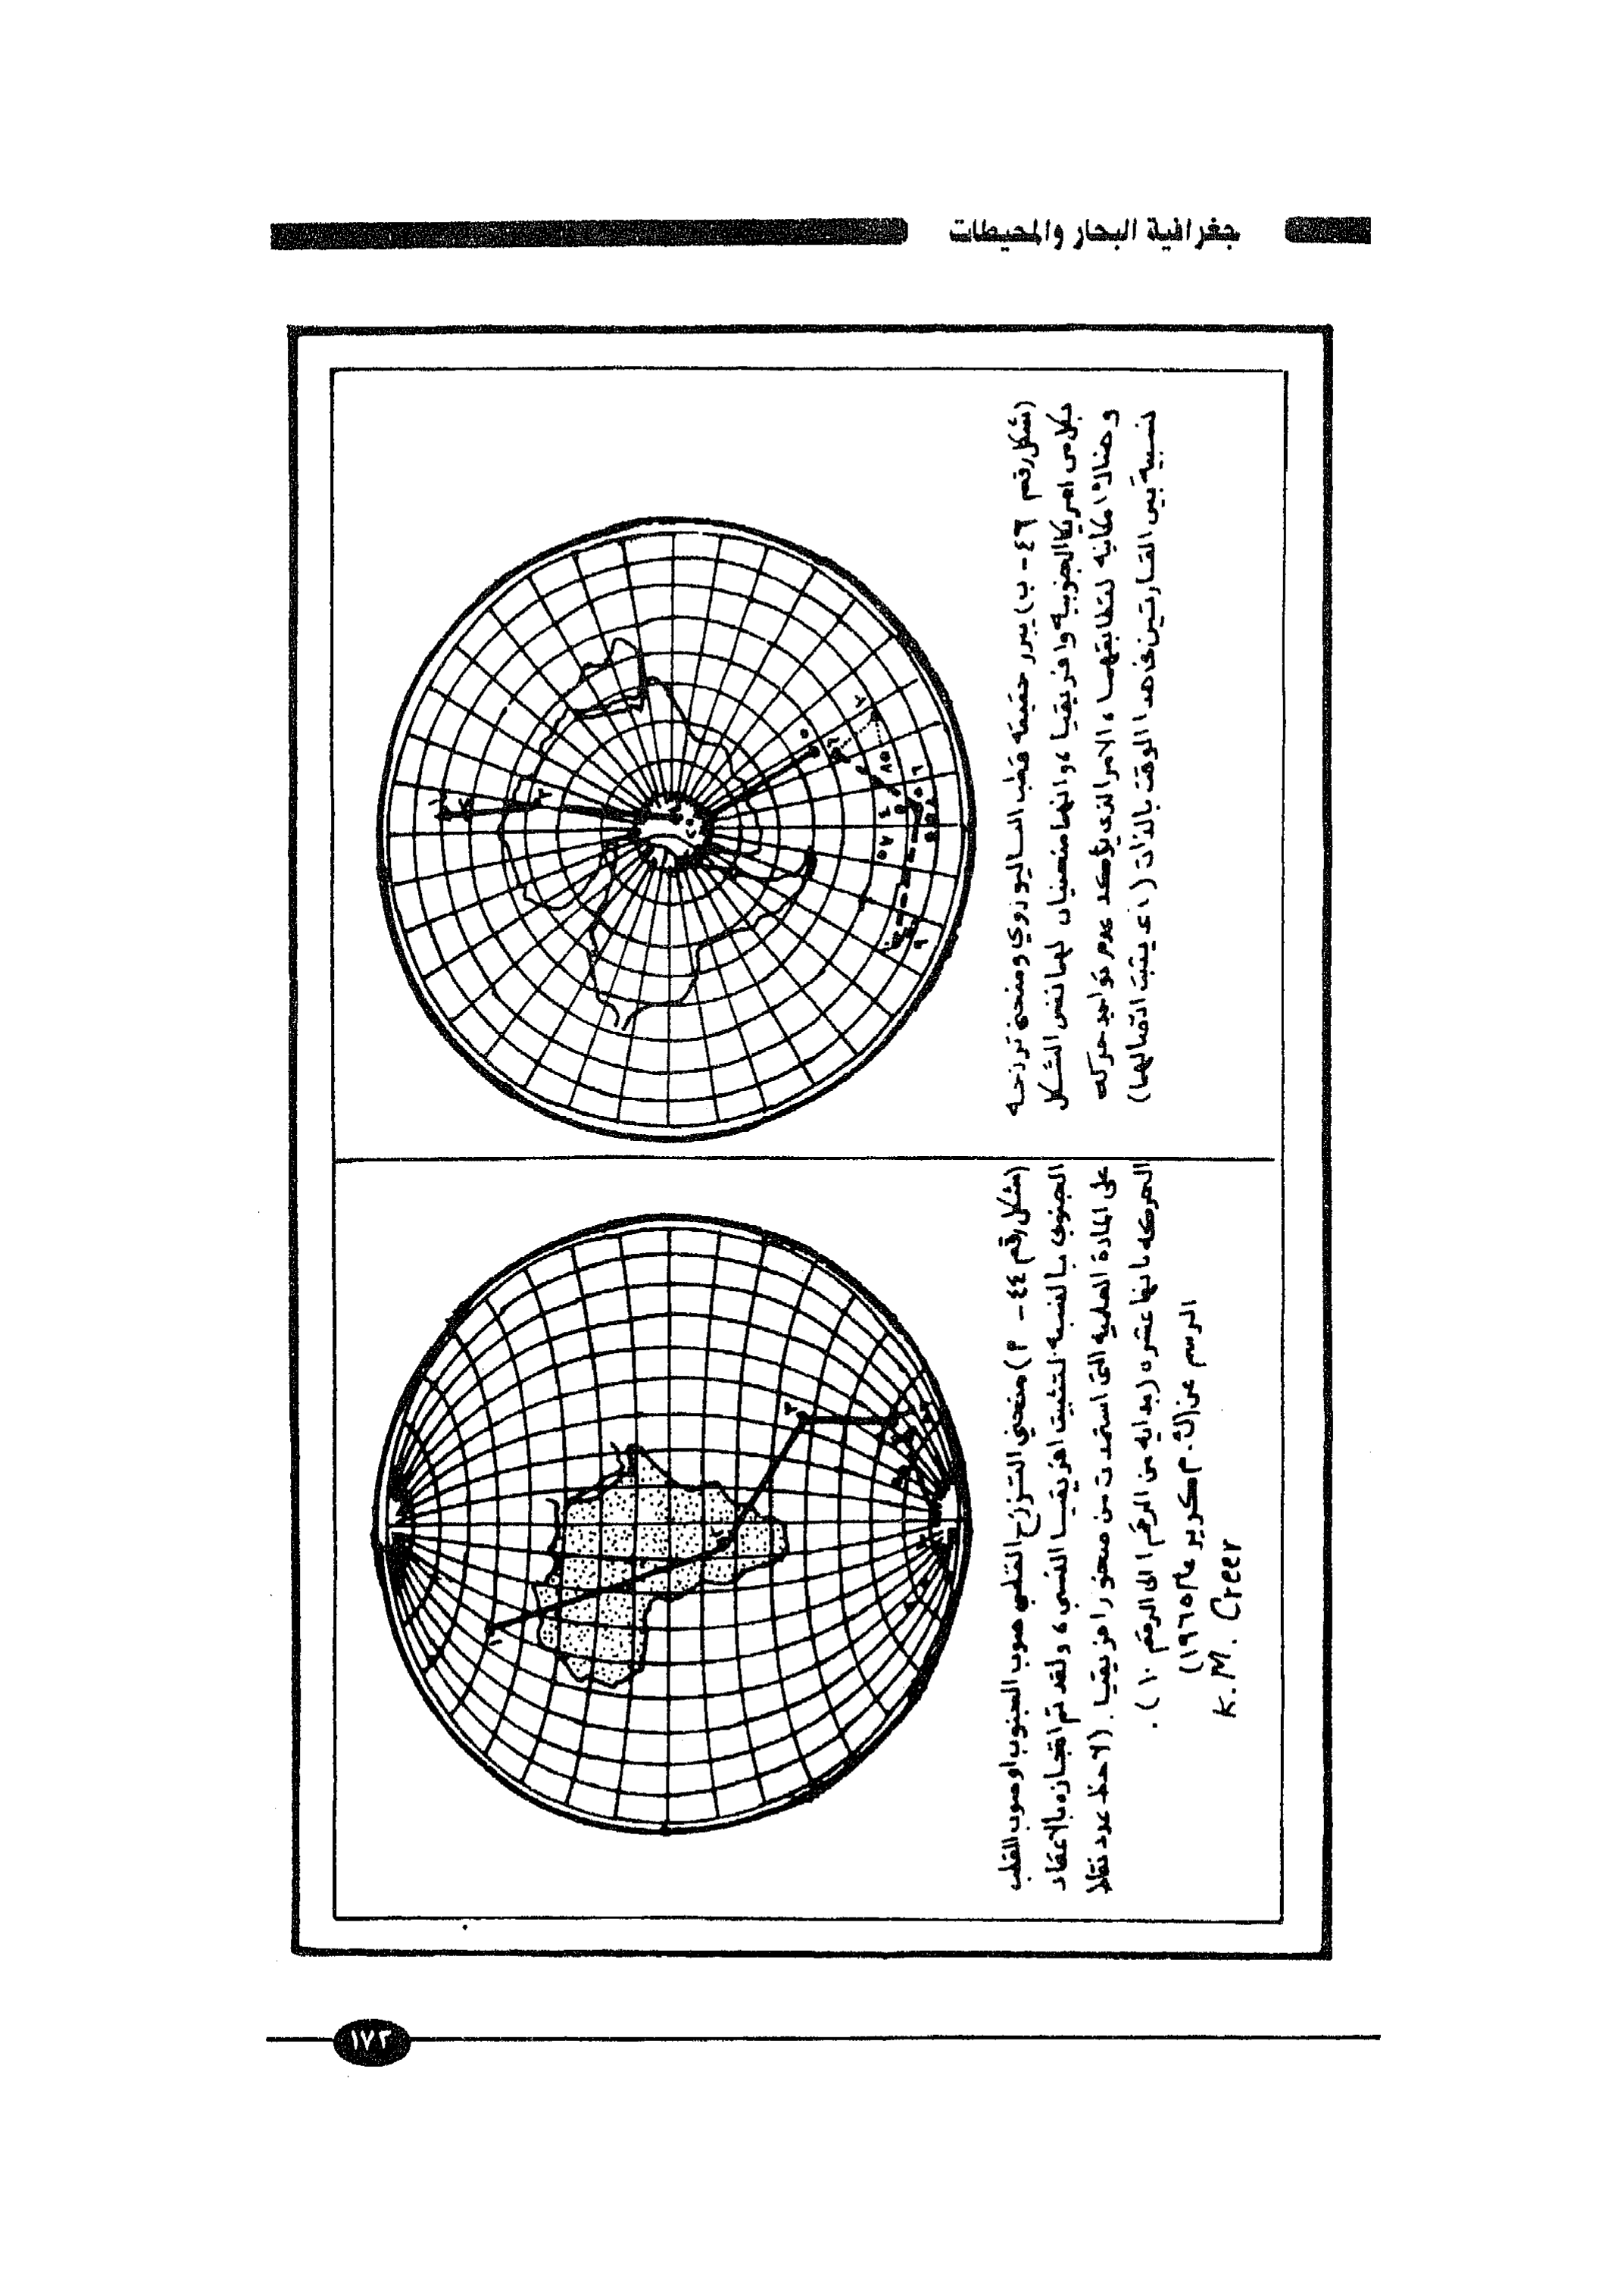 جغرافية البحار والمحيطات
(شكل رقم ٤٦ - ب) يبرر حقيقة قطب الباليوزوي ومنحنى تزحزحه
بكل من امريكا الجنوبيه وافريقيا ، وانهما منحنيان لهما نفس الشكل
وهناك امكانيه لتطابقهما ، الامر الذى يؤكد عدم تواجد حركه
نسبية بين القارتين فى هذا الوقت بالذات ( اى يثبت اتصالهما )
(شكل رقم ٤٤ - ٢) منحنى التزحزح القطبى صوب الجنوب او صوب القطب
الجنوبى بالنسبه لتثبيت افريقيا النسبى ، ولقد تم انجازه بالاعتماد
على المادة العلميه التى استمدت من صخور افريقيا . (لاحظ عدد نقاط
الحركه بانها عشره (بدايه من الرقم ١ الى الرقم ١٠ ) .
الرسم عن (ك . م كرير عام ١٩٦٥)
K. M. Creer
١
٣
٥
٦
٧
٩
١
٢
٣
١٧٢